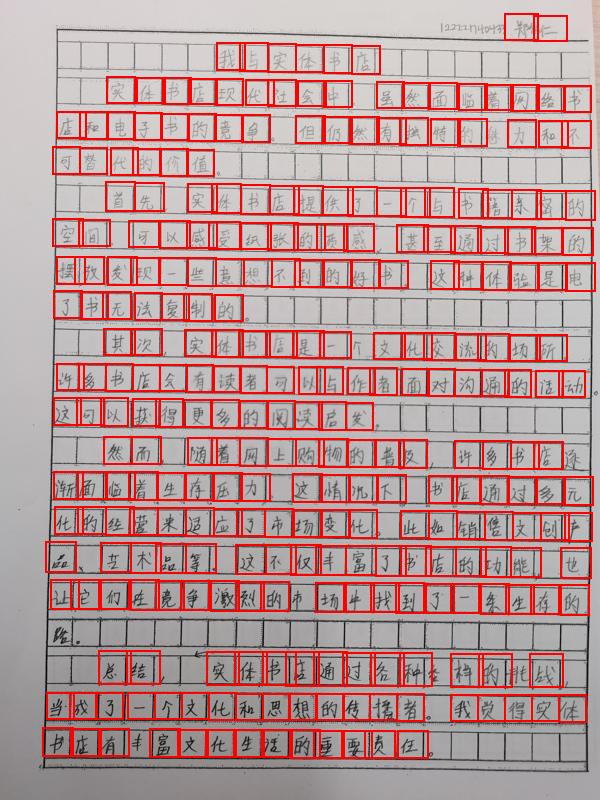 我与实体书店
实体书店现代社会中，虽然面临着网络书
店和电子书的竞争。但仍然有独特的魅力和不
可替代的价值。
首先，实体书店提供了一个与书籍亲密的
空间，可以感受纸张的质感，甚至通过书架的
摆放发现一些意想不到的好书。这种体验是电
子书无法复制的。
其次，实体书店是一个文化交流的场所。
许多书店会有读者可以与作者面对沟通的活动。
这可以获得更多的阅读启发。
然而，随着网上购物的普及，许多书店逐
渐面临着生存压力。这情况下，书店通过多元
化的经营来适应了市场变化。比如销售文创产
品、艺术品等。这不仅丰富了书店的功能，也
让它们在竞争激烈的市场中找到了一条生存的
路。
总结，实体书店通过各种各样的挑战，
当成了一个文化和思想的传播者。我觉得实体
书店有丰富文化生活的重要责任。